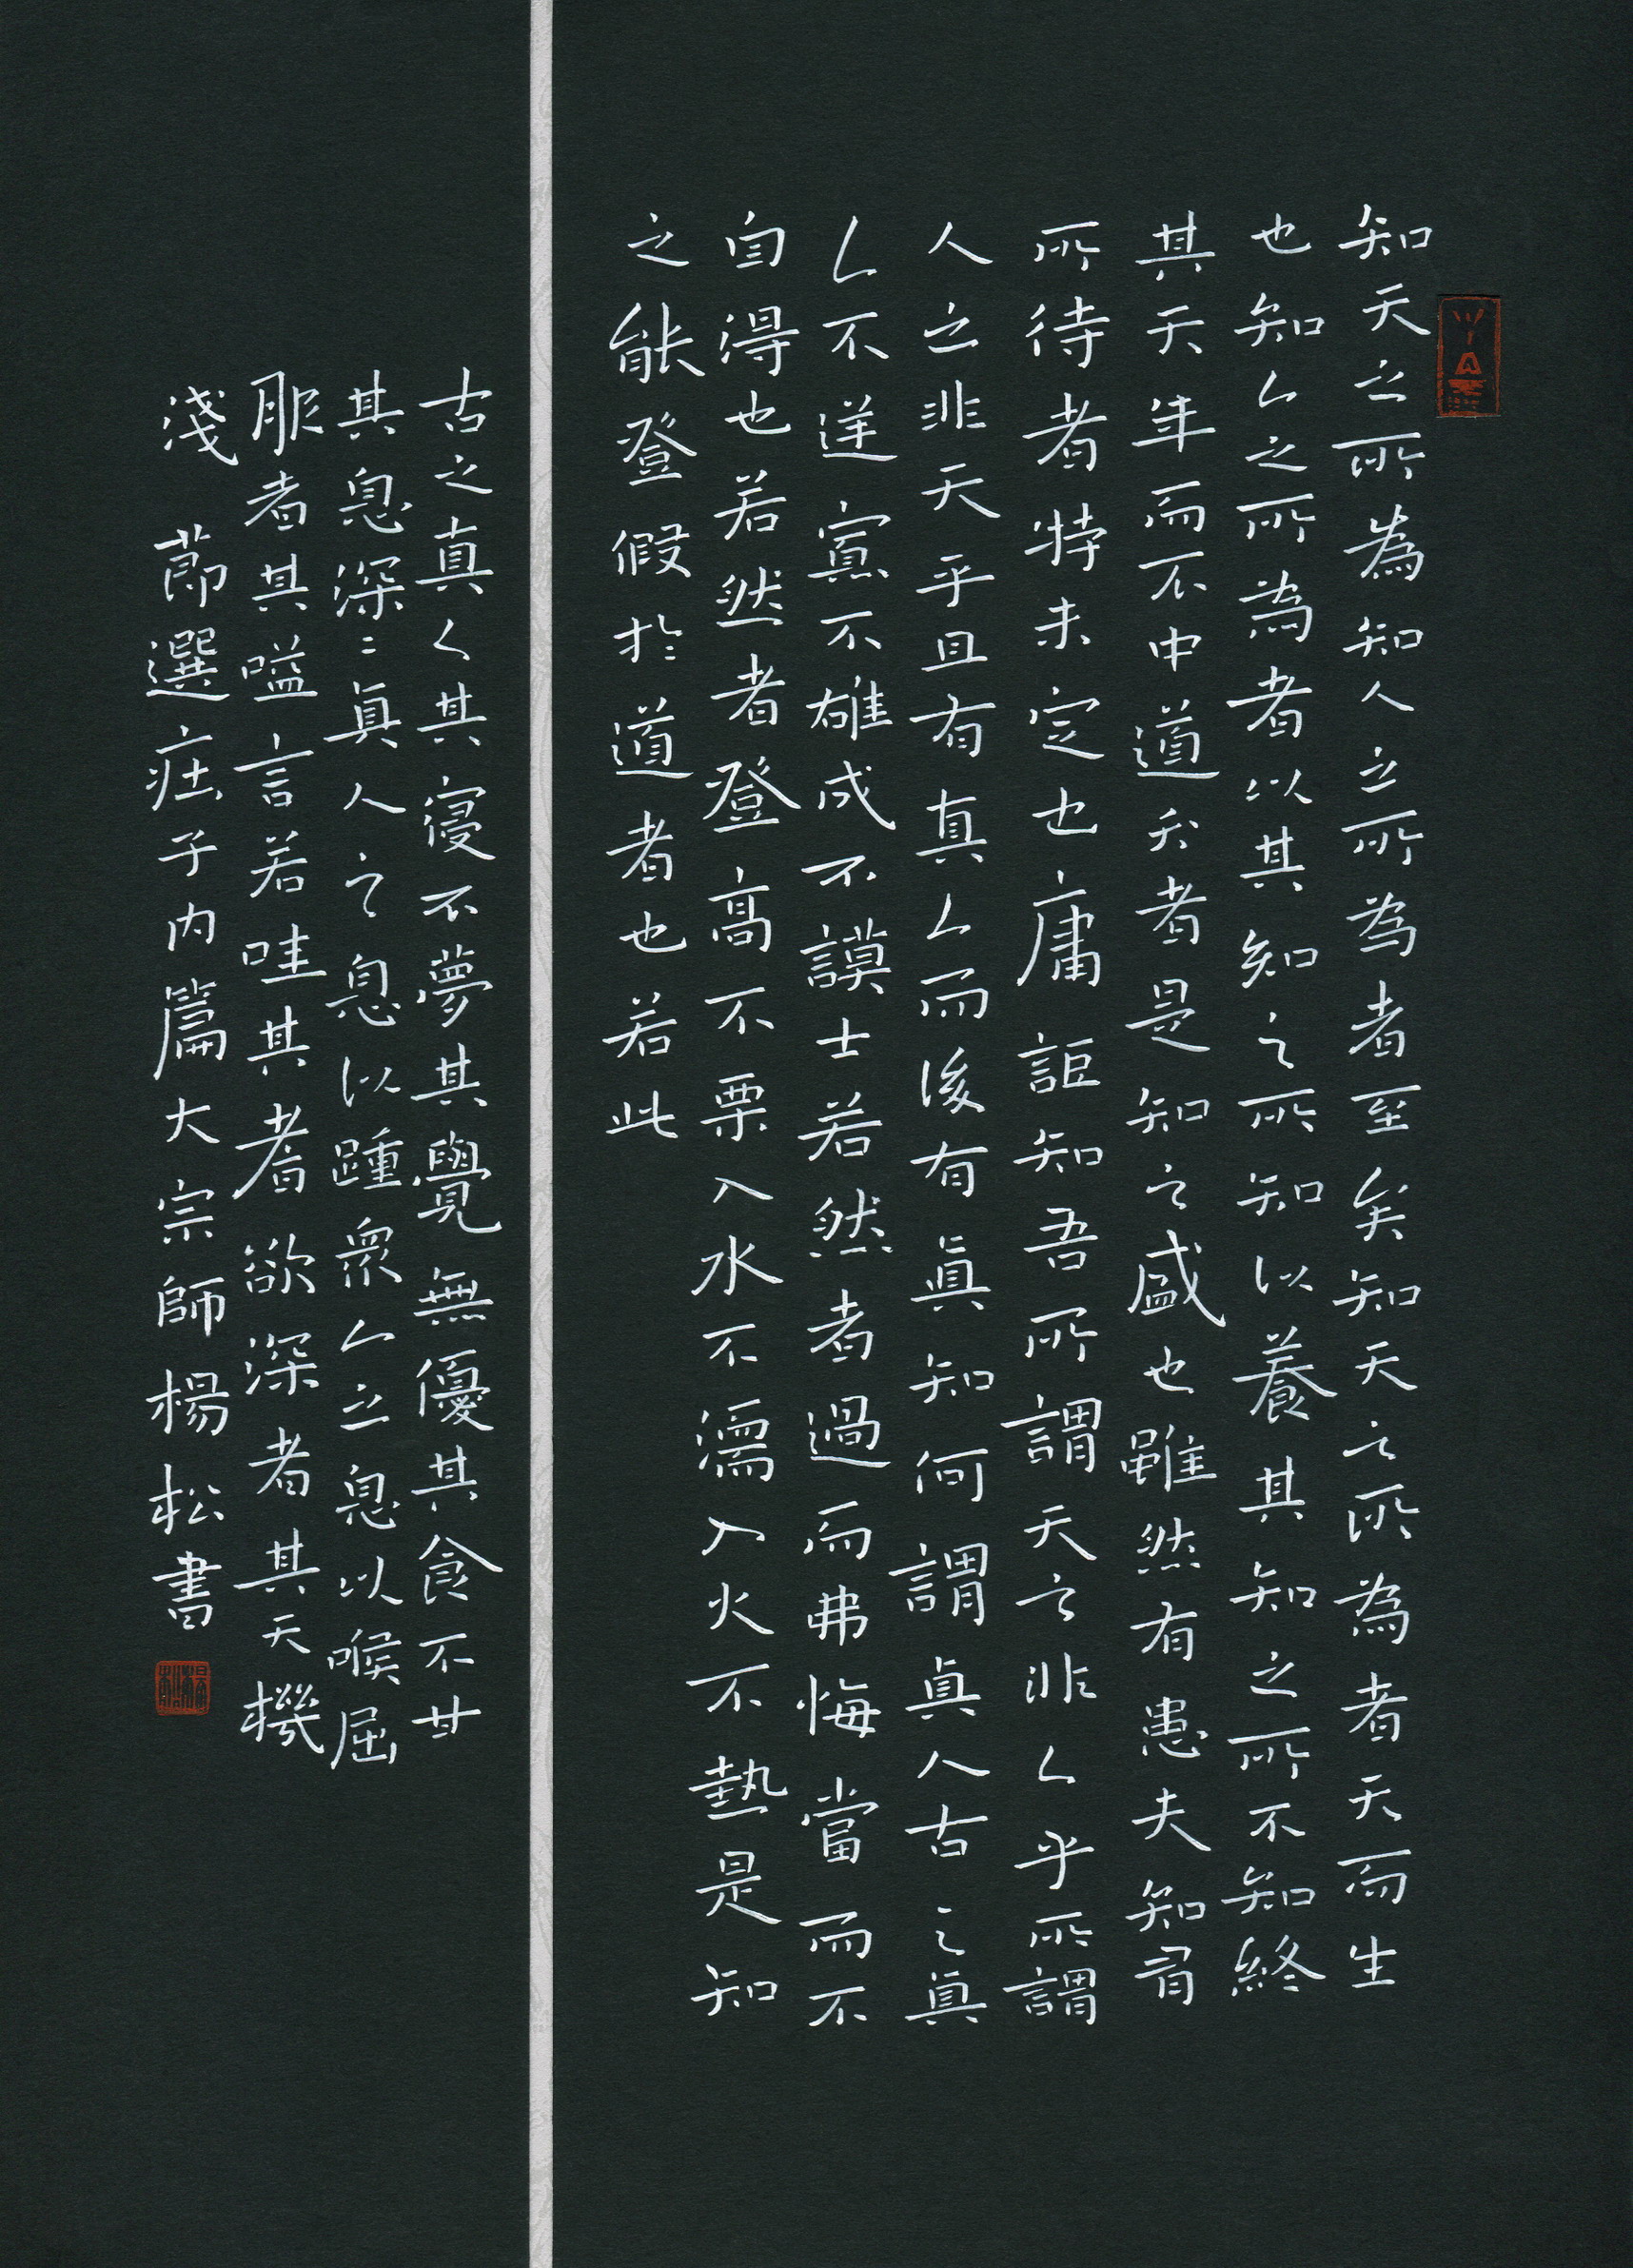 知天之所為知人之所為者至矣知天之所為者天而生
也知人之所為者以其知之所知以養其知之所不知終
其天年而不中道夭者是知之盛也雖然有患夫知有
所待者特未定也庸詎知吾所謂天之非人乎所謂
人之非天乎且有真人而後有真知何謂真人古之真
人不逆寡不雄成不謨士若然者過而弗悔當而不
自得也若然者登高不栗入水不濡入火不熱是知
之能登假於道者也若此
古之真人其寝不夢其覺無優其食不甘
其息深〻真人之息以踵衆人之息以喉屈
服者其嗌言若哇其耆欲深者其天機
淺 節選莊子內篇大宗師楊松書